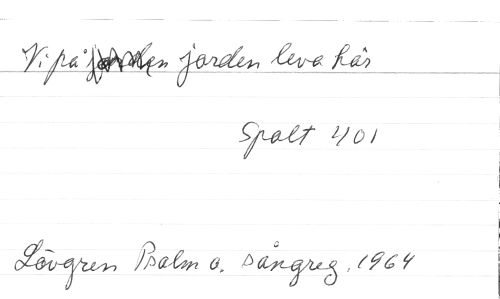 Vi på jorden leva här
Spalt 401
Lövgren Psalm o. sångreg. 1964